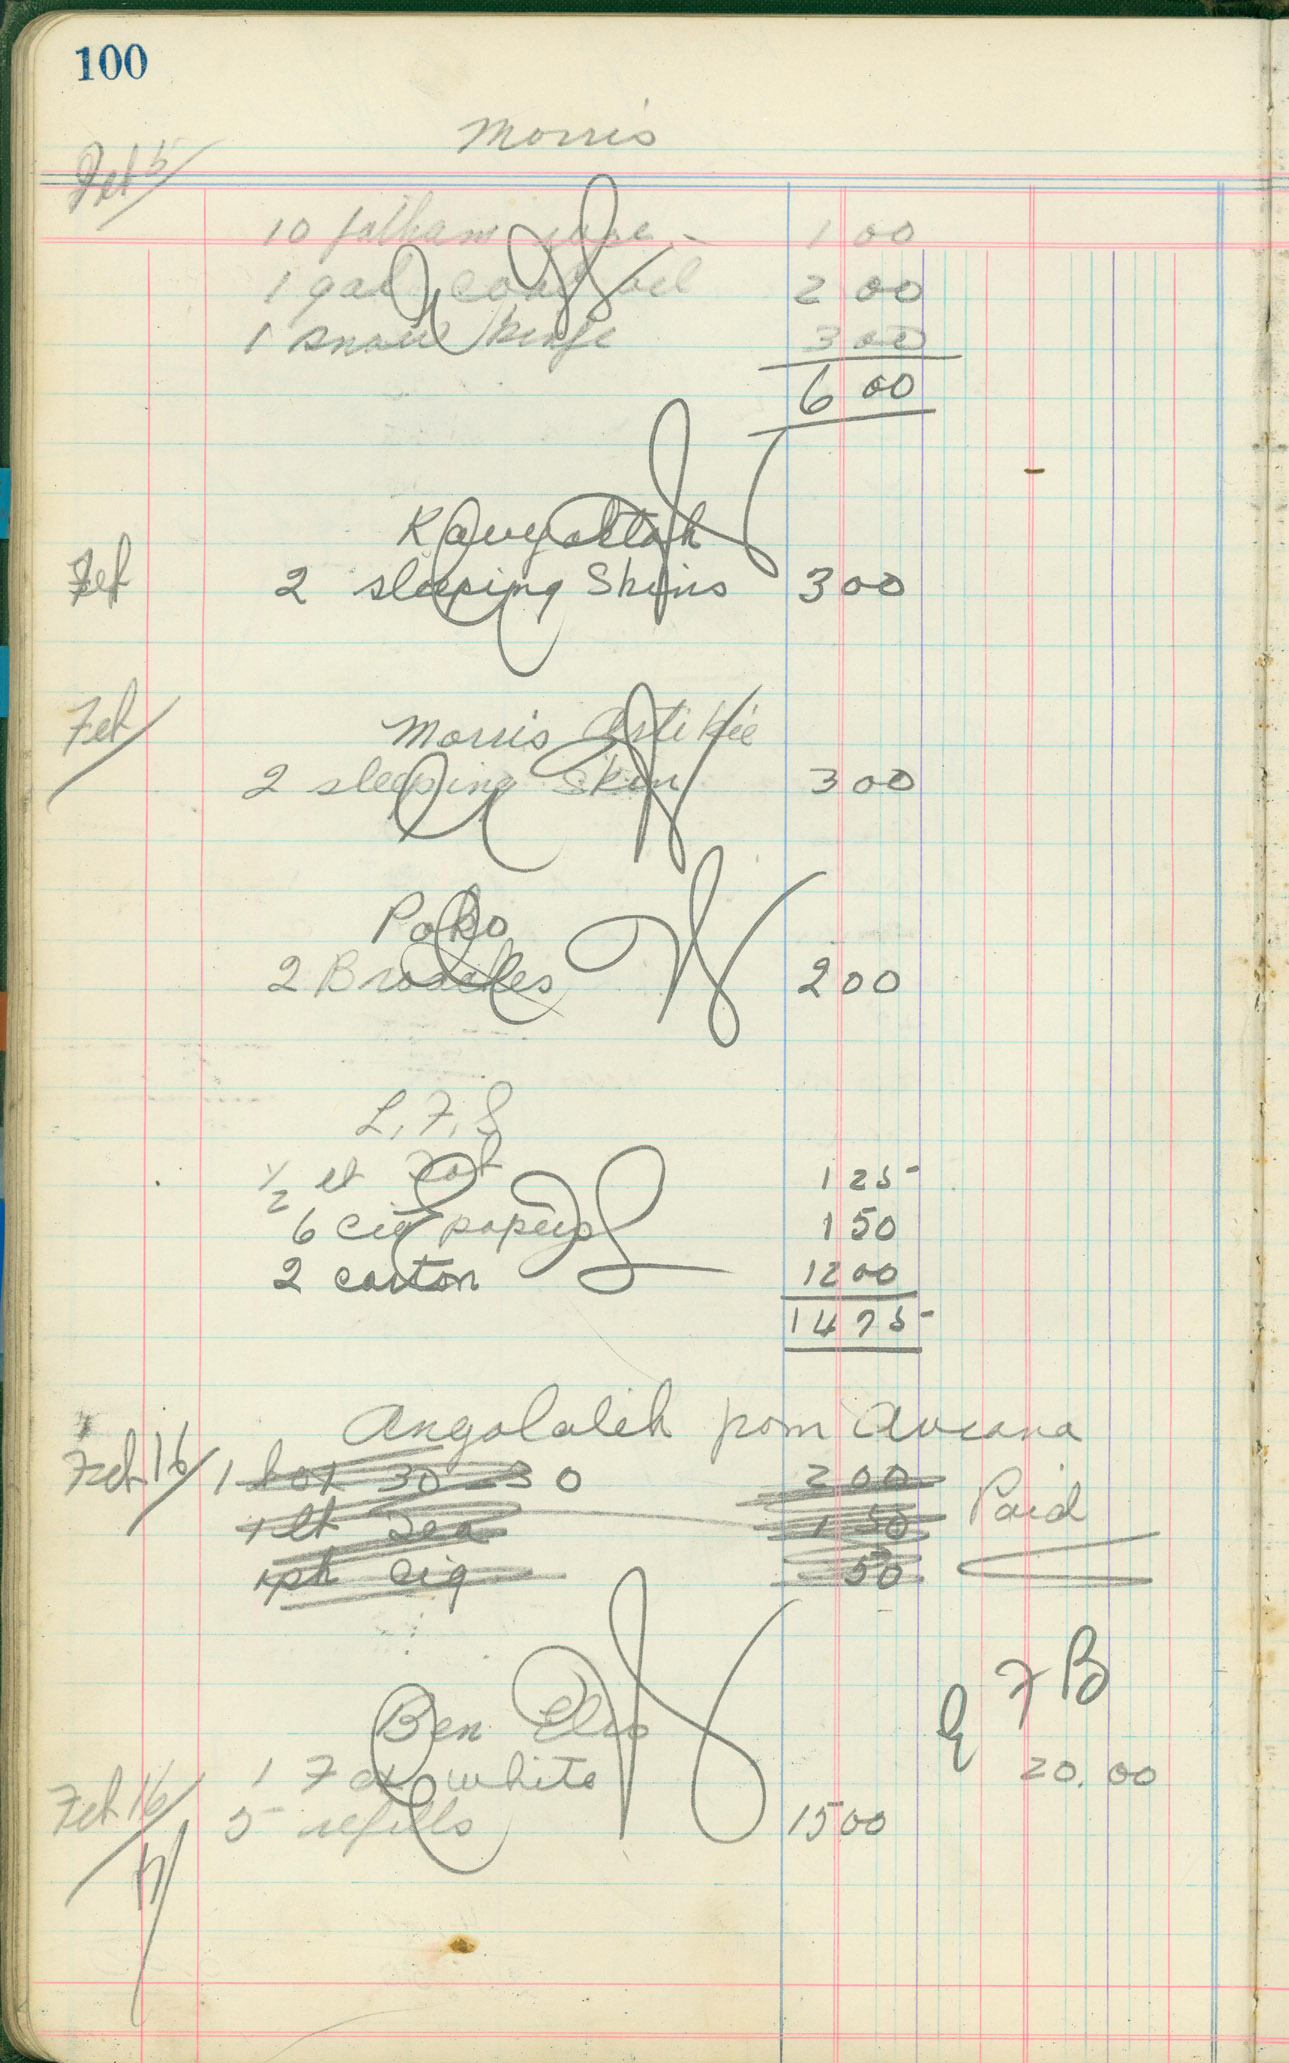 100
Morris
Feb 5/
10 fatham rope - 1 00
1 gal coal oil 2 00
1 snow knife 3 00
6 00
Kauyaktak
Feb 2 sleeping Skins 3 00
Feb/ Morris
2 sleeping Skin 3 00
Poko
2 2 00
L, F, S
1/2 lb 1 25
6 cig papers 1 50
2 carton 12 00
14 75
Angolalik from
Feb 16/ 1 box 30-30 2 00
1 lb Tea 1 50 Paid
1 pk cig 50
F B
Ben
1 Fox white 20.00
Feb 16/ 5 refills 15 00